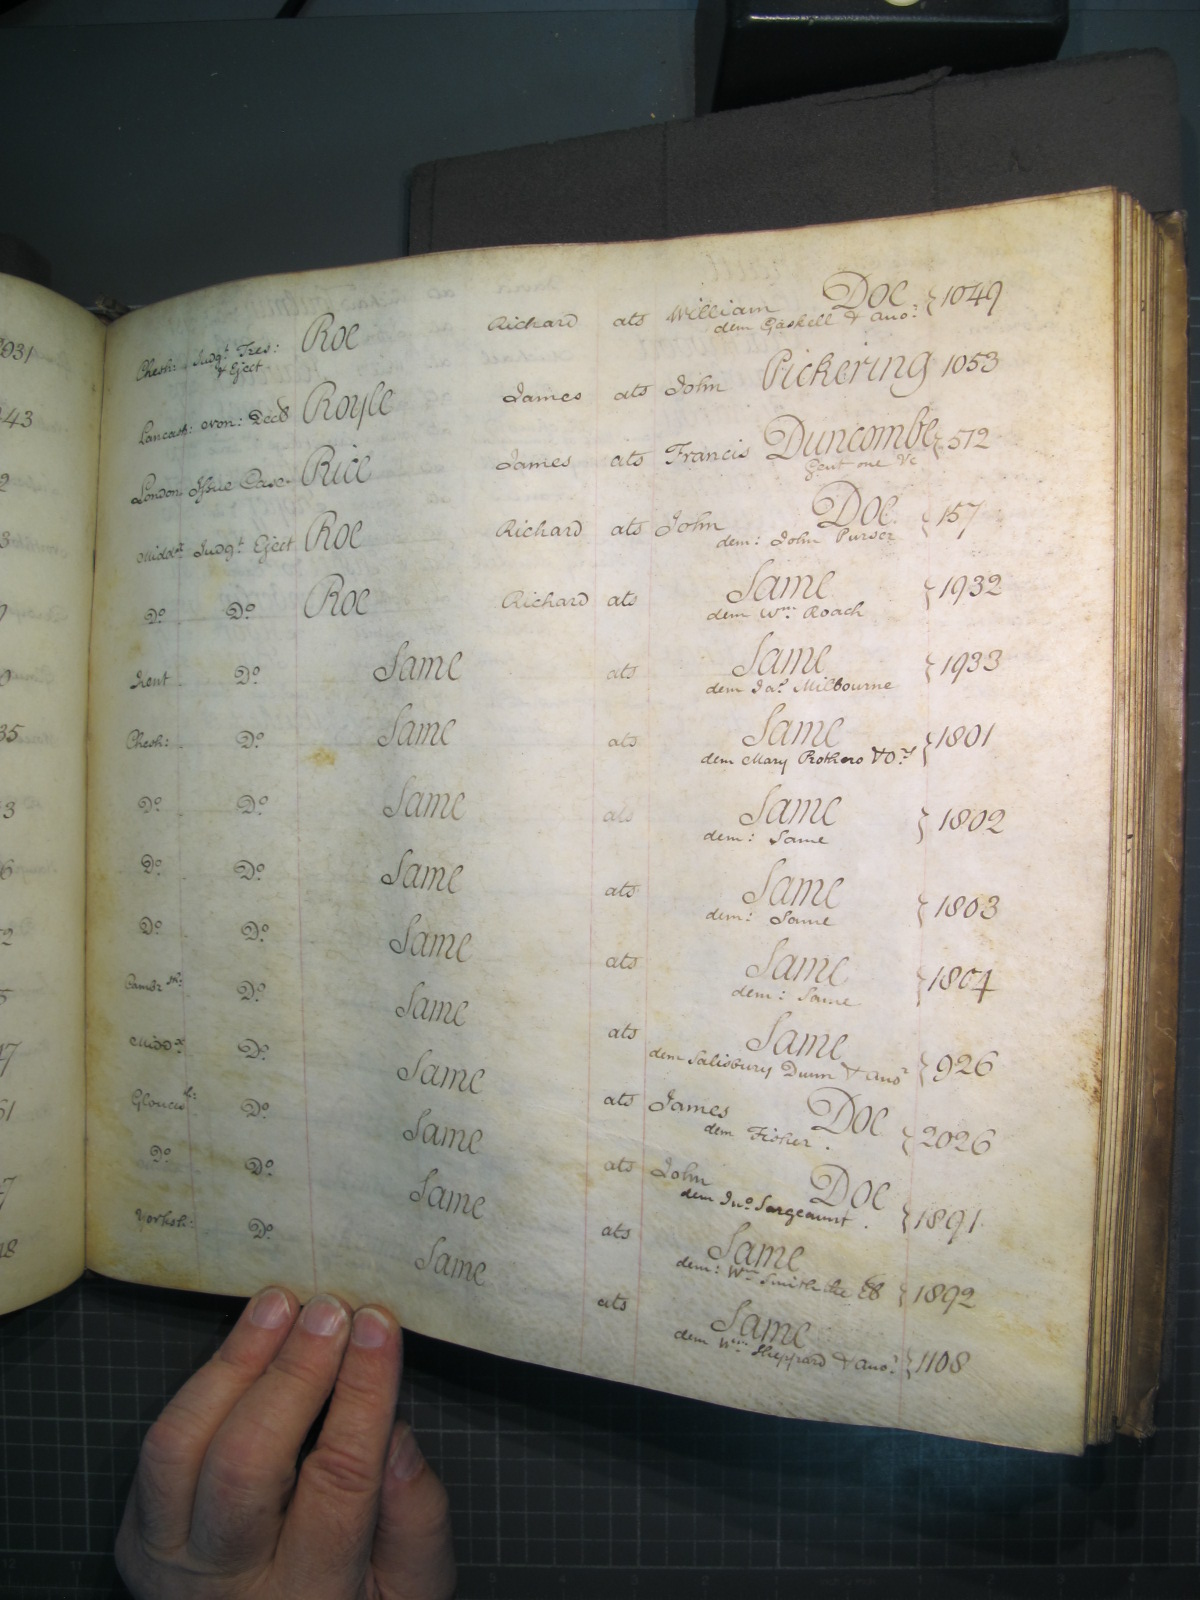 Chesh: Judgt Tres: Roe Richard ats William Doe } 1049
& Eject dem Gaskell & Anor
Lancash: Royle James ats John Pickering 1053
London Issue Case Rice James ats Francis Duncombe } 572
Gent one &c
Middx Judgt Eject Roe Richard ats John Doe } 157
dem: John Purser
Do Do Roe Richard ats Same } 1932
dem Wm: Roach
Kent Do Same ats Same } 1933
dem Jas Milbourne
Chesh: Do Same ats Same } 1801
dem Mary Rothero & Ors
Do Do Same ats Same } 1802
dem: Same
Do Do Same ats Same } 1803
dem: Same
Do Do Same ats Same } 1804
dem: Same
Do Same ats Same } 926
dem Salisbury Dunn & Anor
Middx Do Same ats James Doe } 2026
dem Fisher
Do Same ats John Doe } 1891
dem Jno Sargeaunt
Do Do Same ats Same } 1892
dem: Wm Smith
Yorksh: Do Same ats Same } 1108
dem Wm Sheppard & Anor
931
43
2
3
35
3
6
2
5
17
61
7
18